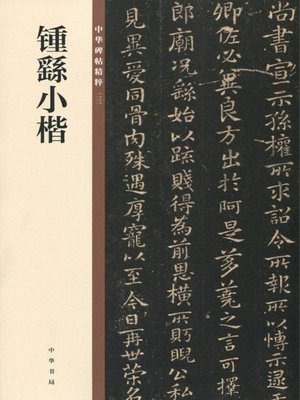 锺繇小楷
中华碑帖精粹
中华书局
尚書宣示孫權所求詔令所報所以博示逮于
卿佐必冀良方出於阿是芻蕘之言可擇
郎廟況繇始以疏賤得為前恩橫所眄睨公私
見異愛同骨肉殊遇厚寵以至今日再世榮名